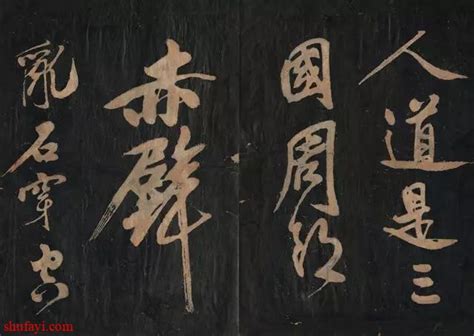 人道是三
國周郎
赤壁
亂石穿空
shufayi.com